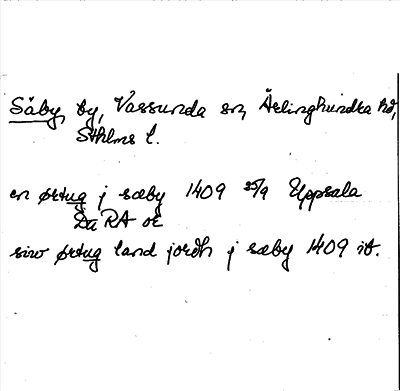 Säby, by, Vassunda sn, Ärlinghundra hd,
Sthlms l.
en ørtug j sæby 1409 25/9 Uppsala
Da RA or
siw ørtug land jordh j sæby 1409 ib.